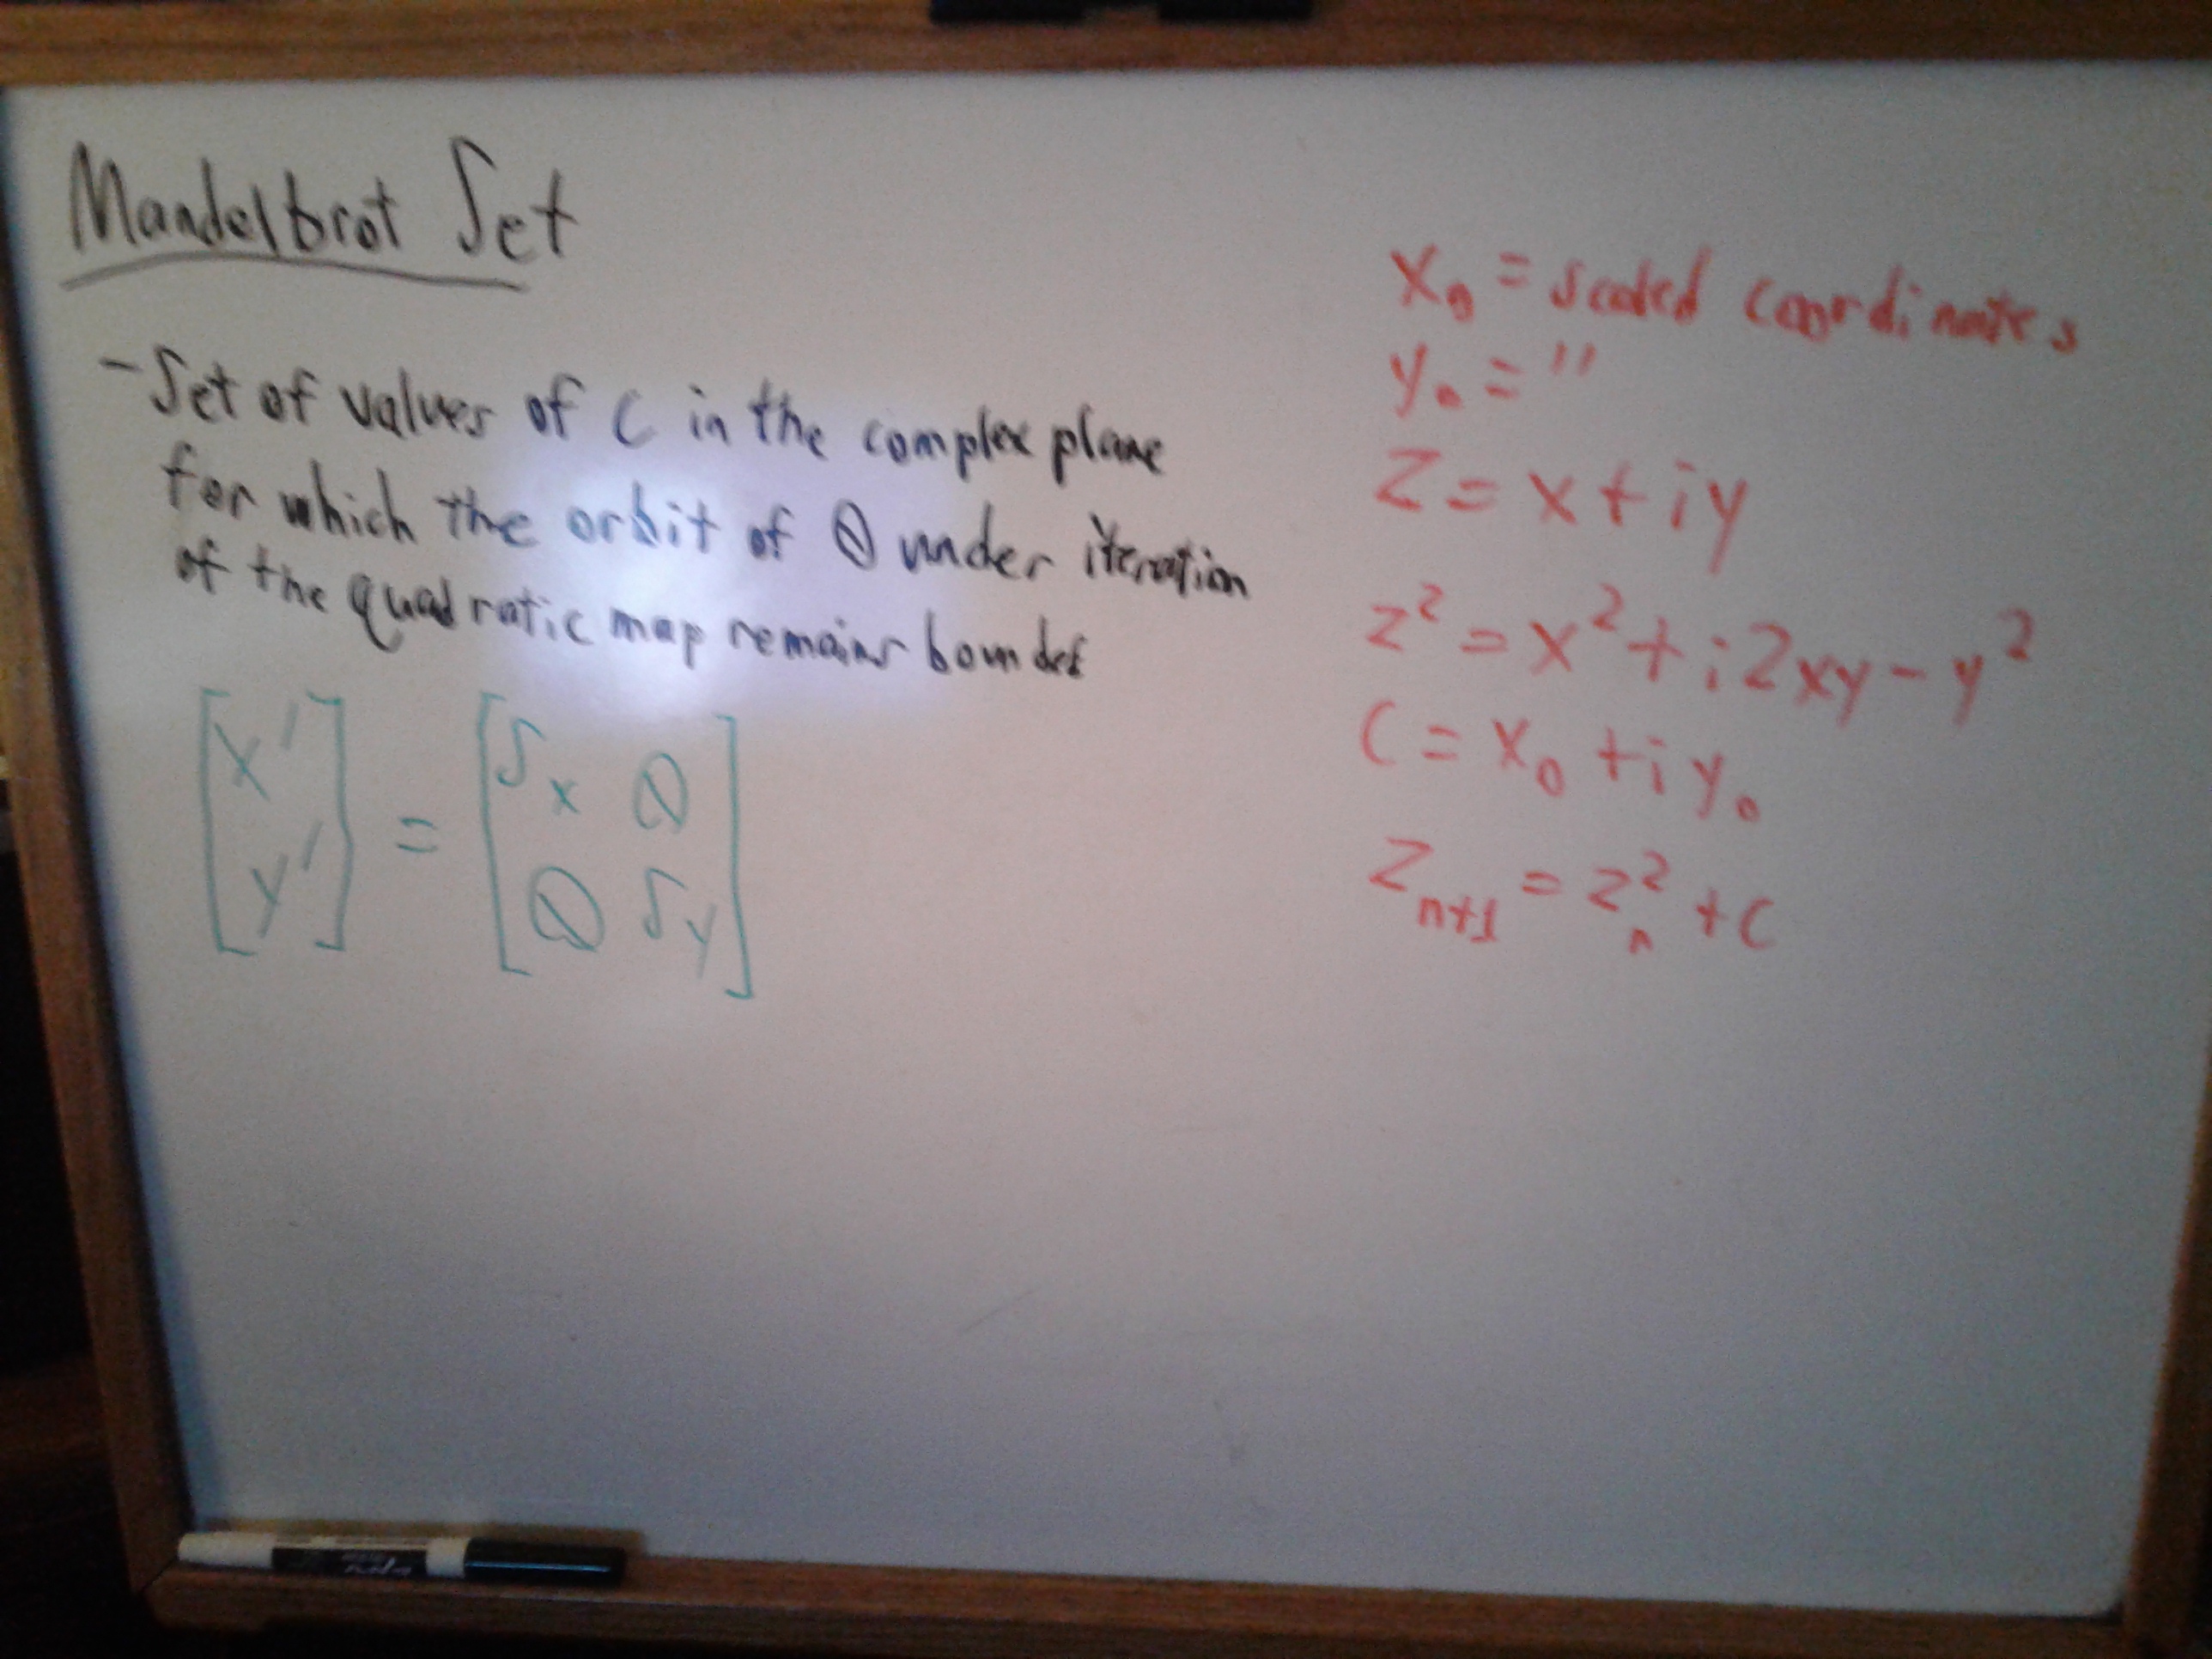 Mandelbrot Set
- Set of values of C in the complex plane
for which the orbit of 0 under iteration
of the quadratic map remains bounded
[x' y'] = [Sx 0 0 Sy]
x₀ = scaled coordinates
y₀ = "
Z = x + iy
z² = x² + i2xy - y²
C = x₀ + iy₀
Zₙ₊₁ = zₙ² + C